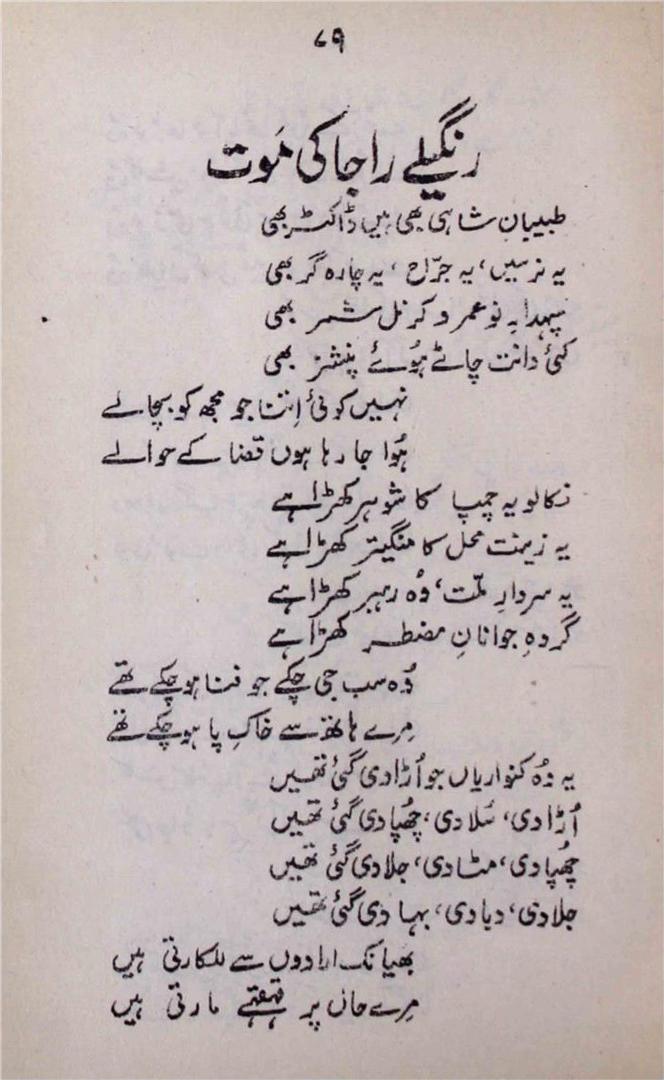 ۸۹
رنگیلے راجا کی مَوت
طبیبانِ شاہی بھی ہیں ڈاکٹر بھی
یہ نرسیں، یہ جرّاح، یہ چارہ گر بھی
سپہدارِ نو عمر و کرنل شمر بھی
کئی دانت چاٹے ہُوئے پنشنر بھی
نہیں کوئی اِتنا جو مجھ کو بچالے
ہُوا جا رہا ہوں قضا کے حوالے
نکالو یہ چمپا کا شوہر کھڑا ہے
یہ زینت محل کا منگیتر کھڑا ہے
یہ سردارِ ملّت، وُہ رہبر کھڑا ہے
گروہِ جوانانِ مضطر کھڑا ہے
وُہ سب جی چکے جو فنا ہو چکے تھے
مِرے ہاتھ سے خاکِ پا ہو چکے تھے
یہ وُہ کنواریاں جو اُڑا دی گئی تھیں
اُڑا دی، سُلا دی، چھُپا دی گئی تھیں
چھُپا دی، مٹا دی، جلا دی گئی تھیں
جلا دی، دبا دی، بہا دی گئی تھیں
بھیانک ارادوں سے للکارتی ہیں
مِرے حال پر قہقہے مارتی ہیں